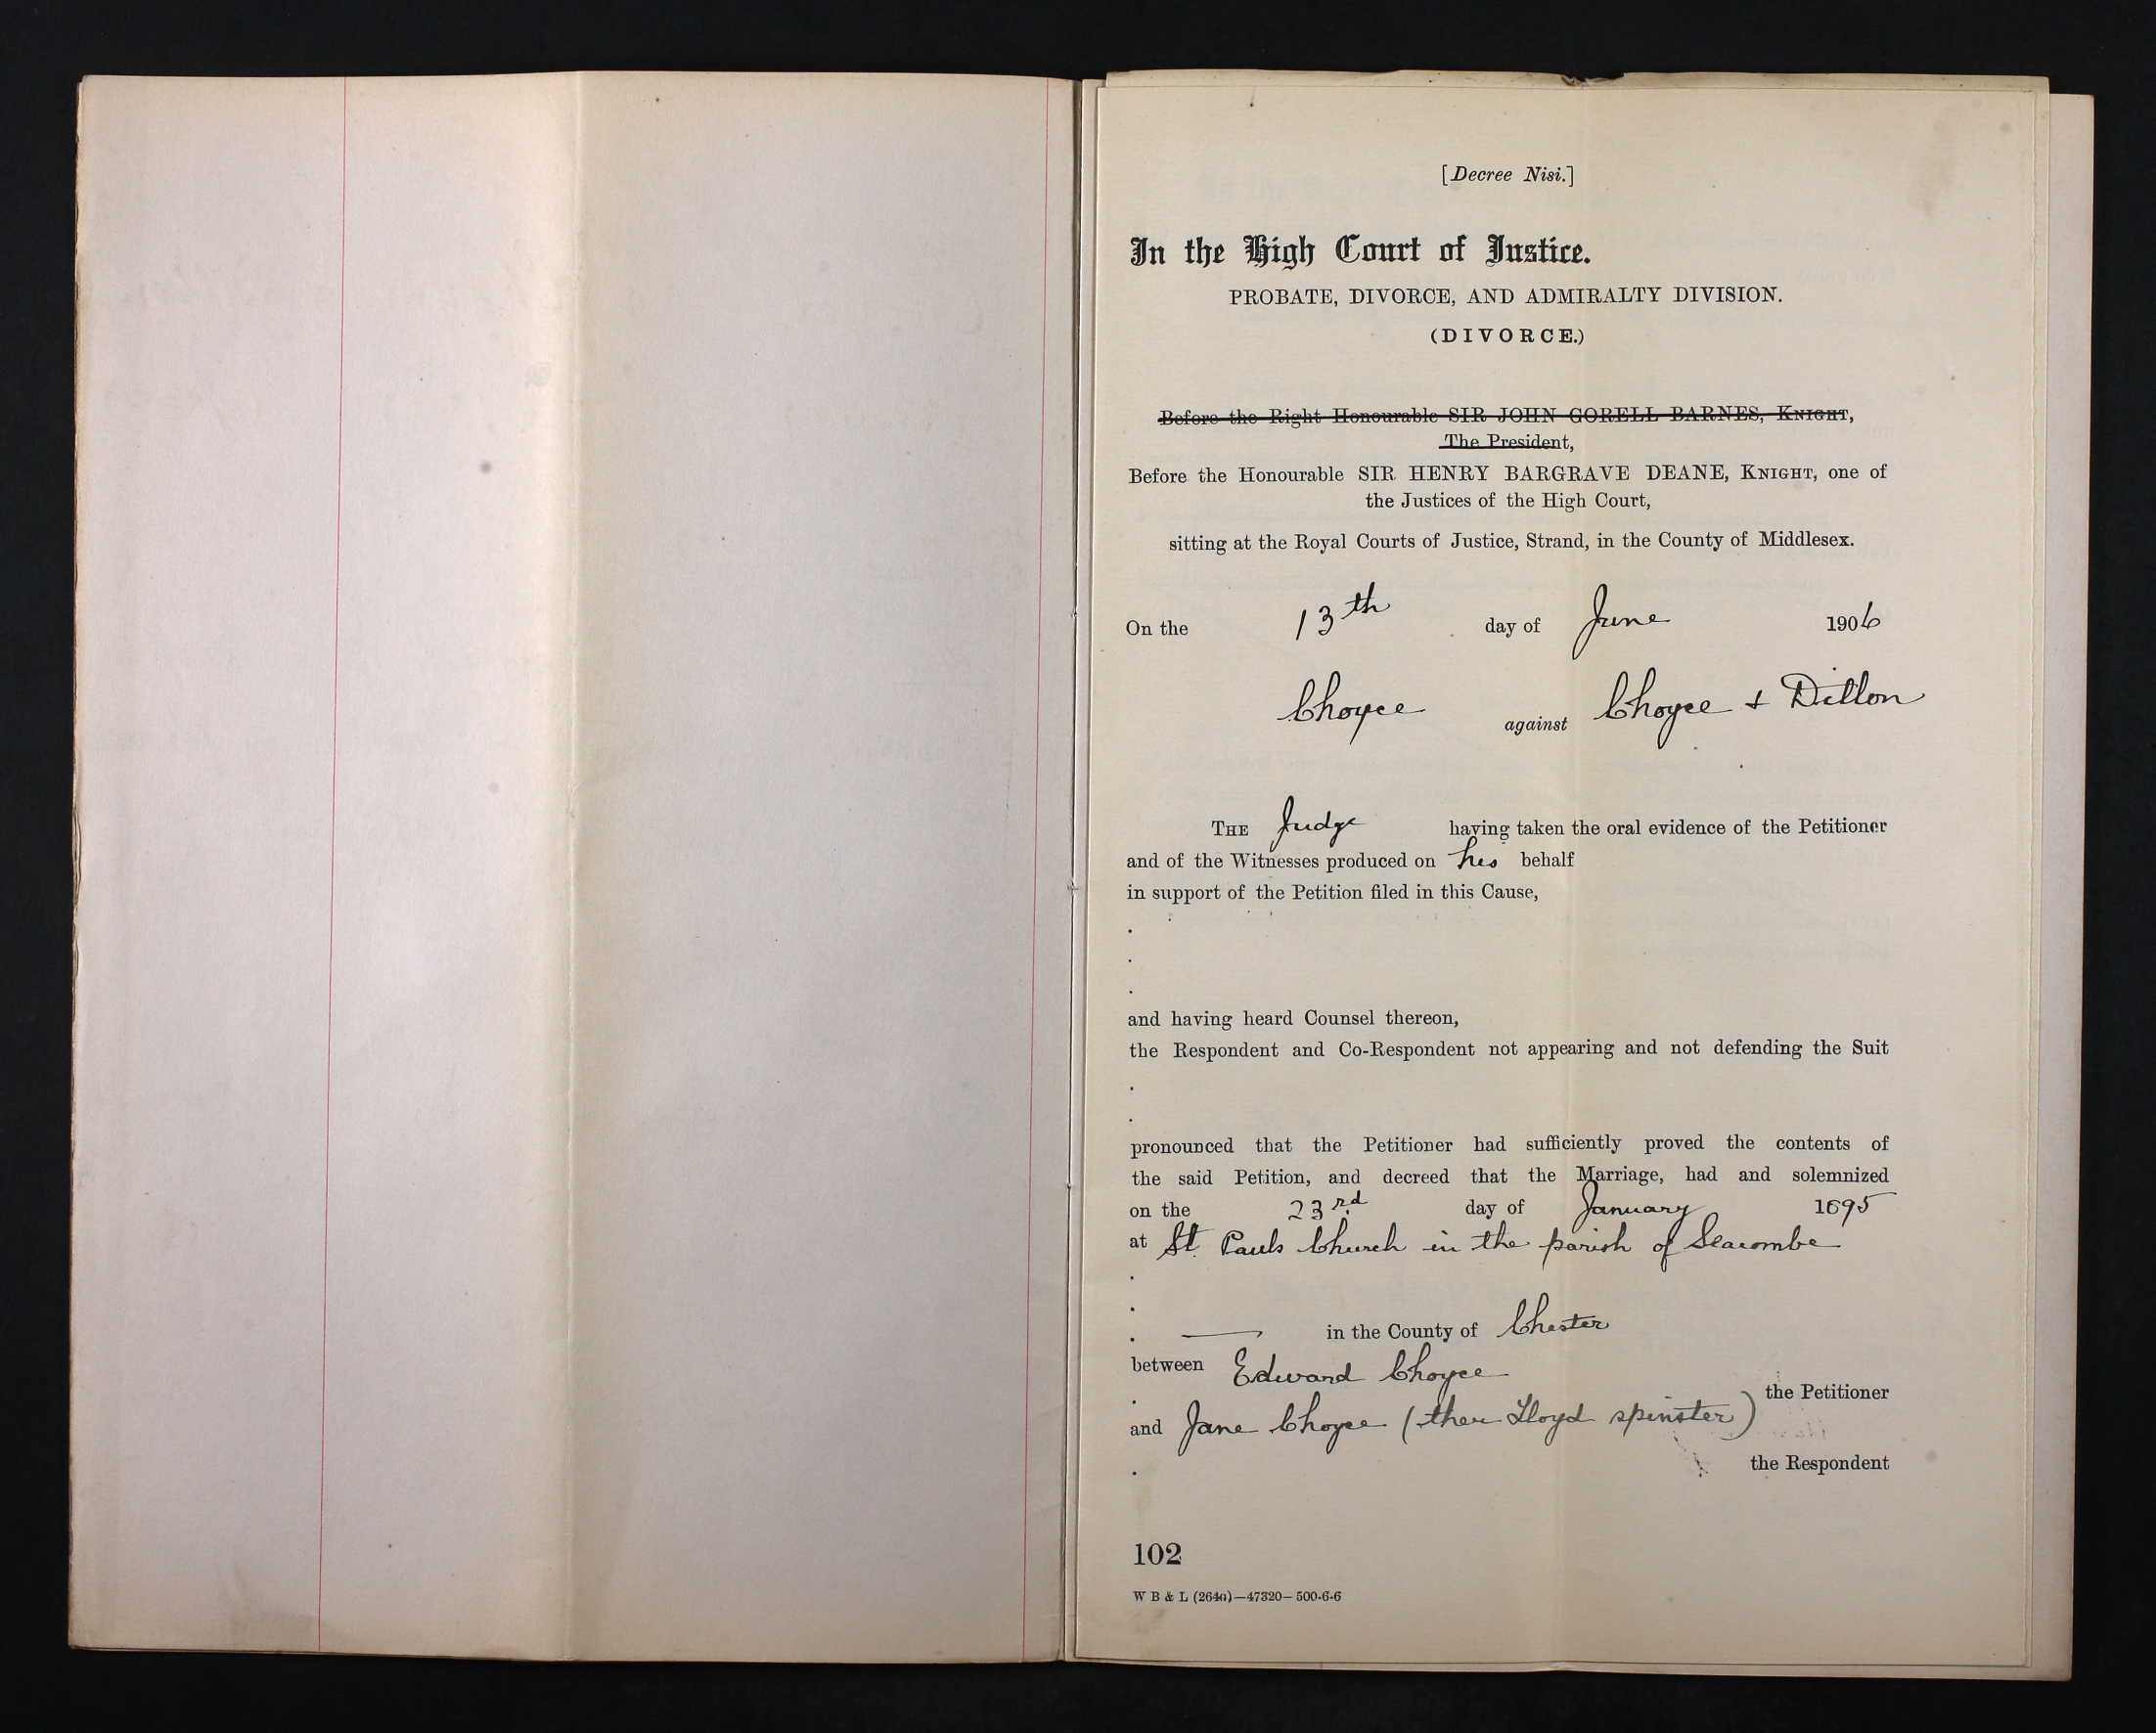 [Decree Nisi.]
In the High Court of Justice.
PROBATE, DIVORCE, AND ADMIRALTY DIVISION.
(DIVORCE.)
Before the Right Honourable SIR JOHN GORELL BARNES, KNIGHT,
The President,
Before the Honourable SIR HENRY BARGRAVE DEANE, KNIGHT, one of
the Justices of the High Court,
sitting at the Royal Courts of Justice, Strand, in the County of Middlesex.
On the 13th day of June 1906
Choyce against Choyce + Dillon
THE Judge having taken the oral evidence of the Petitioner
and of the Witnesses produced on his behalf
in support of the Petition filed in this Cause,
and having heard Counsel thereon,
the Respondent and Co-Respondent not appearing and not defending the Suit
pronounced that the Petitioner had sufficiently proved the contents of
the said Petition, and decreed that the Marriage, had and solemnized
on the 23rd day of January 1895
at St. Pauls Church in the parish of Seacombe
in the County of Chester
between Edward Choyce
the Petitioner
and Jane Choyce (then Lloyd spinster)
the Respondent
102
W B & L (264a)—47320—500-6-6